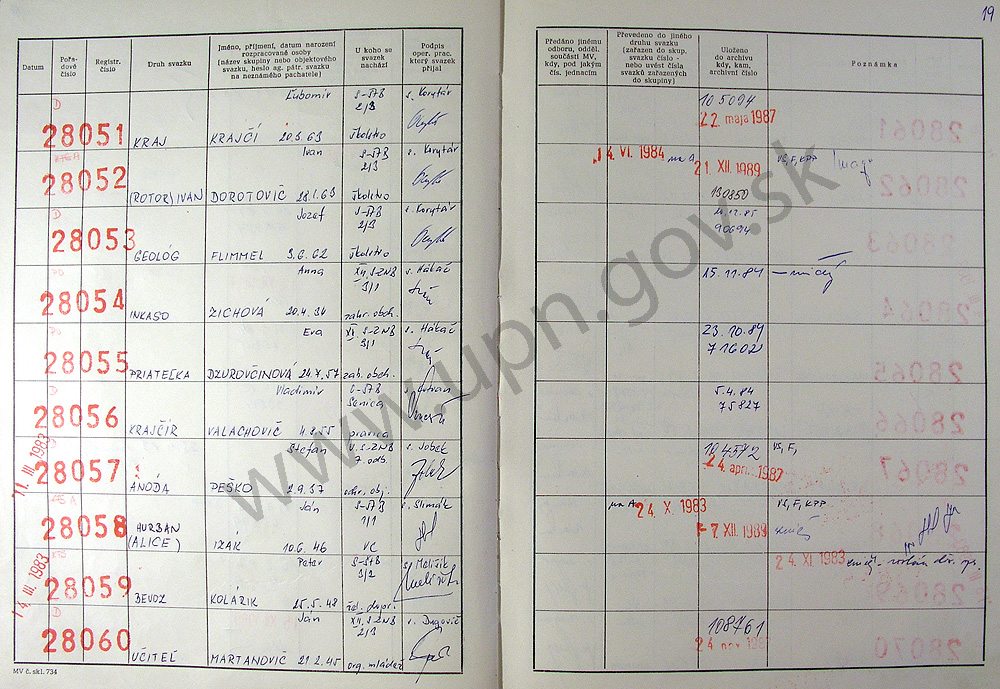 19
Datum
Pořa-
dové
číslo
Registr.
číslo
Druh svazku
Jméno, příjmení, datum narození
rozpracované osoby
(název skupiny nebo objektového
svazku, heslo ag. pátr. svazku
na neznámého pachatele)
U koho se
svazek
nachází
Podpis
oper. prac.
který svazek
přijal
Předáno jinému
odboru, odděl.
součásti MV,
kdy, pod jakým
čís. jednacím
Převedeno do jiného
druhu svazku
(zařazen do skup.
svazku číslo -
nebo uvést čísla
svazků zařazených
do skupiny)
Uloženo
do archivu
kdy, kam,
archivní číslo
Poznámka
D
28051
KRAJ
Ľubomír
KRAJČÍ 20.3.63
S-ŠTB
2/3
školstvo
s. Korytár
105094
22 mája 1987
28052
(ROTOR) IVAN
Ivan
DOROTOVIČ 28.1.63
S-ŠTB
2/3
školstvo
s. Korytár
14. VI. 1984 na A
21. XII. 1989
130850
VŠ, F, KPP
D
28053
GEOLÓG
Jozef
FLIMMEL 9.6.62
S-ŠTB
2/3
školstvo
s. Korytár
90694
28054
INKASO
Anna
ZICHOVÁ 20.4.34
XII. S-ZNB
3/1
zahr. obch.
s. Hákáč
15.11.84
28055
PRIATEĽKA
Eva
DZUROVČINOVÁ 24.X.57
XII. S-ZNB
3/1
zah. obch.
s. Hákáč
23.10.84
71602
D
28056
KRAJČÍR
Vladimír
VALACHOVIČ 4.8.55
Senica
5.4.84
75827
11. III. 1983
D
28057
ÁNODA
Štefan
PEŠKO 2.9.37
V. S-ZNB
7. odb.
ochr. obj.
s. Jobek
104572
24. apr. 1987
VŠ, F,
28058
HURBAN
(ALICE)
Ján
IZÁK 10.6.46
S-ŠTB
1/1
VC
s. Slimák
na A 24. X. 1983
-7. XII. 1989
VŠ, F, KPP
14. III. 1983
28059
BEVOZ
Peter
KOLÁRIK 25.5.48
S-ŠTB
3/2
žel. dopr.
s. Melišík
24. XI 1983
D
28060
UČITEĽ
Ján
MARTANOVIČ 21.2.45
XII. S-ZNB
2/3
org. mládež
s. Dugovič
108761
24 nov 198
MV č. skl. 734
www.upn.gov.sk